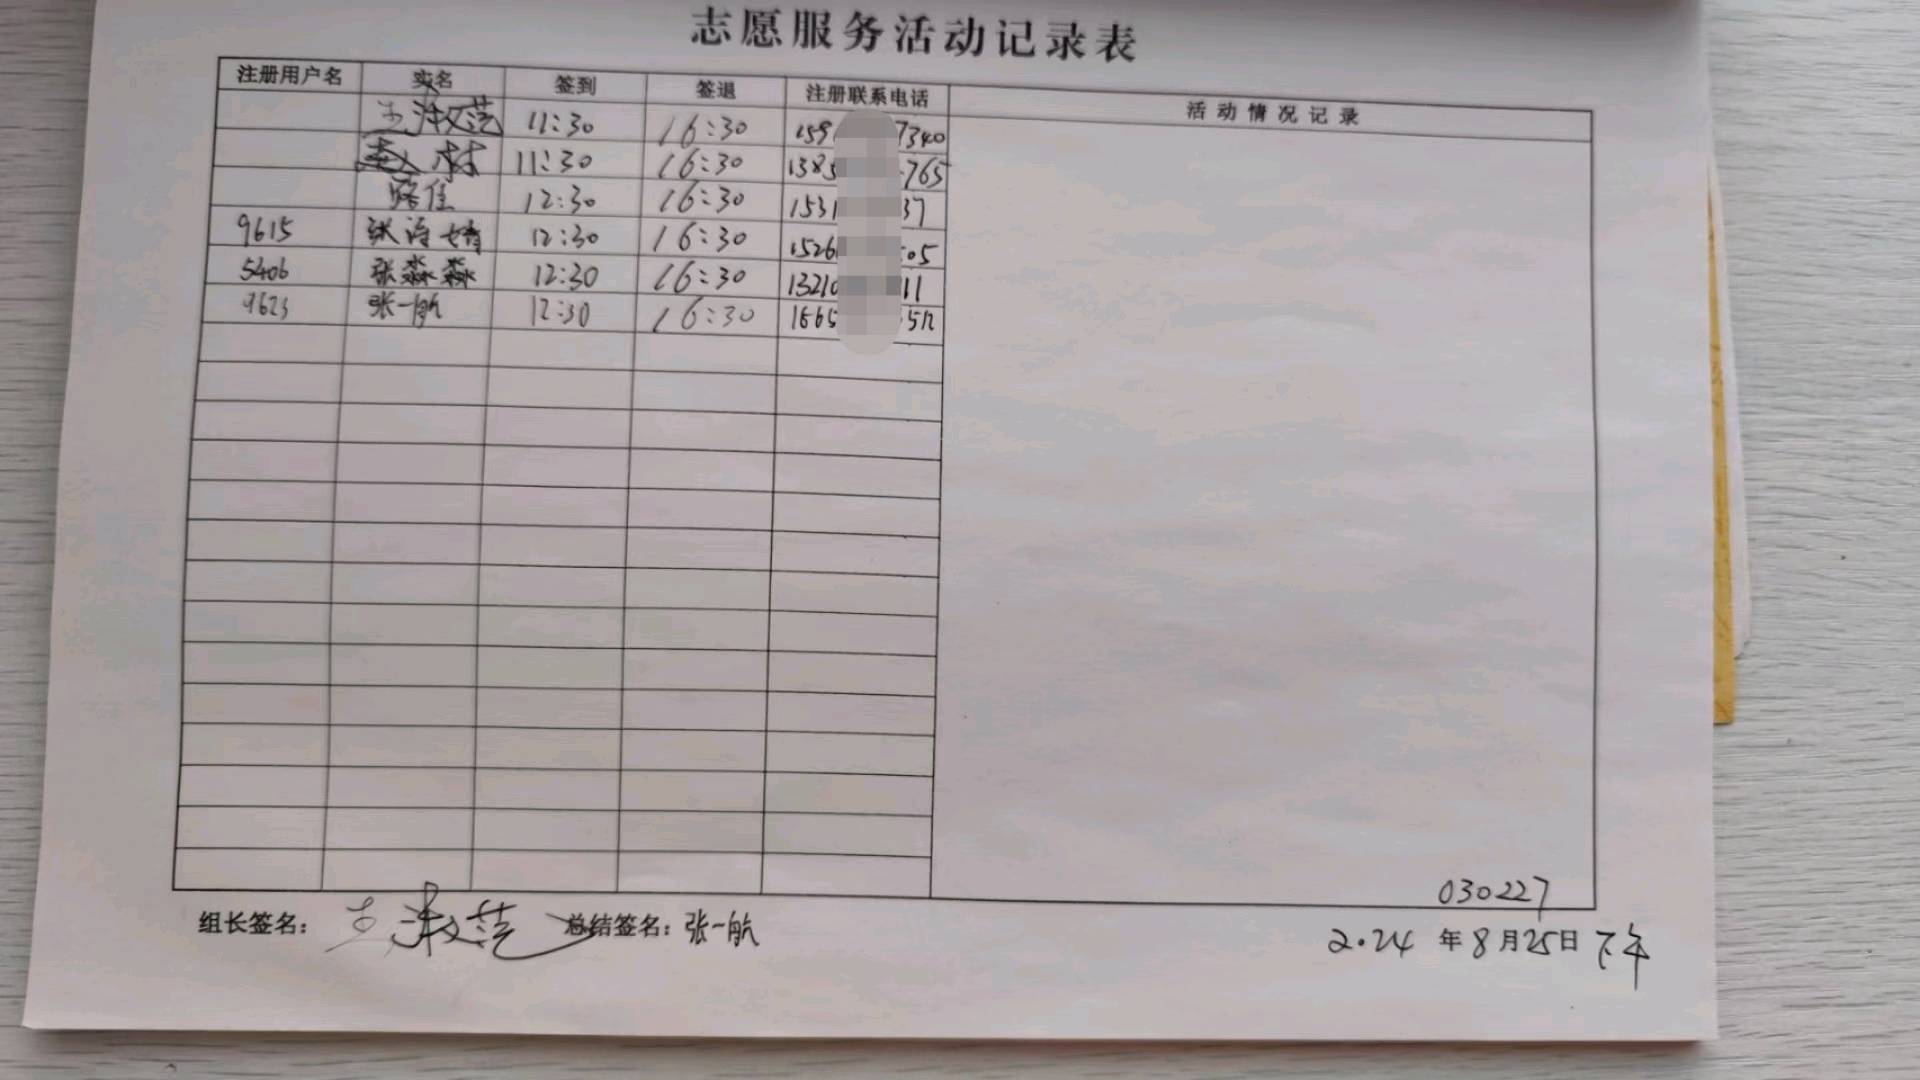 志愿服务活动记录表
注册用户名 实名 签到 签退 注册联系电话 活动情况记录
王淑范 11:30 16:30 159 7340
林 11:30 16:30 1385 765
路佳 12:30 16:30 1531 37
9615 张海婧 12:30 16:30 1526 05
5406 张淼淼 12:30 16:30 13210 11
9623 张一航 12:30 16:30 1665 512
030227
组长签名: 王淑范 总结签名: 张一航 2024 年 8 月 25 日 下午